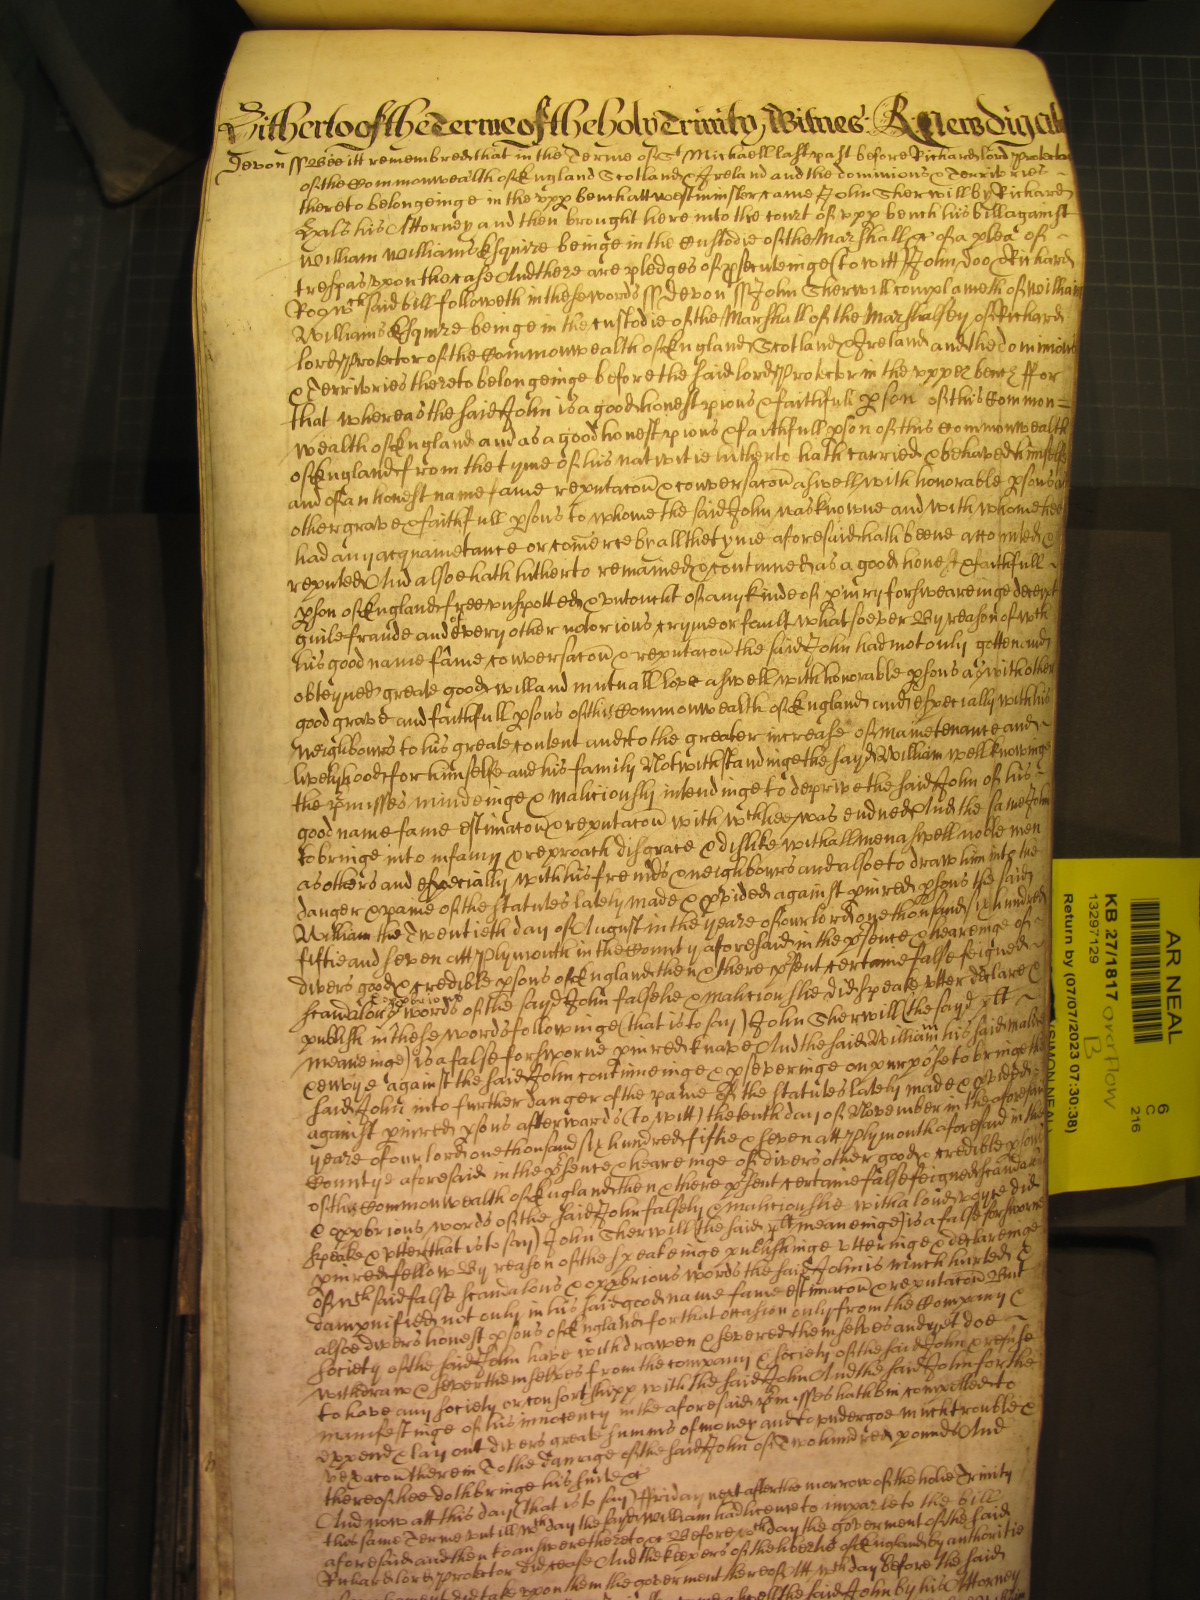 Hitherto of the Terme of the holy Trinity Witnes: R: Newdigate
Devon ss Bee itt remembred that in the Terme of St Michaell last past before Richard lord Protector
of the Commonwealth of England Scotland & Ireland and the dominions & Territories
thereto belongeinge in the vpp bench att Westminster came John Sherwill by Richard
Hals his Attorney and then brought here into the court of vpp bench his bill against
William Williams Esquire beinge in the Custodie of the Marshall &c of a plea of
trespas vpon the case And there are pledges of psecuteinge (to witt) John Doo & Richard
Roo wch said bill followeth in these words ss Devon ss John Sherwill complaineth of William
Williams Esquire beinge in the custodie of the Marshall of the Marshalsey of Richard
lord Protector of the Commonwealth of England Scotland & Ireland and the dominions
& Territories thereto belongeinge before the said lord Protector in the vpper bench ffor
that whereas the said John is a good honest pious & faithfull pson of this Common=
wealth of England and as a good honest pious & faithfull pson of this Commonwealth
of England from the tyme of his nativitie hitherto hath carried & behaved himselfe
and of an honest name fame reputacon & conversacon aswell with honorable psons as
other grave & faithfull psons to whome the said John was knowne and with whome hee
had any acquaintance or comerce by all the tyme aforesaid hath beene accompted &
reputed And alsoe hath hitherto remained & continued as a good honest & faithfull
pson of England free vnspotted & vntoucht of any kinde of piury forsweareinge deceipt
guile fraude and of every other notorious cryme or fault whatsoever By reason of wch
his good name fame conversacon & reputacon the said John had not only gotten and
obteyned greate good will and mutuall love aswell with honorable psons as with other
good grave and faithfull psons of this Commonwealth of England and especially with his
Neighbours to his greate content and to the greater increase of maintenance and
livelyhood for himselfe and his family Notwithstandinge the sayd William well knowinge
the pmisses mindeinge & maliciously intendinge to deprive the said John of his
good name fame estimacon & reputacon with wch hee was endued And the same John
to bringe into infamy & reproach disgrace & dislike with all men aswell noble men
as others and especially with his freinds & neighbours and alsoe to draw him into the
danger & paine of the statutes lately made & pvided against piured psons the said
William the Twentieth day of August in the yeare of our lord one thousand six hundred
fiftie and seven att Plymouth in the County aforesaid in the psence & heareinge of
divers good & credible psons of England then & there psent certaine false feigned
scandalous & oppbrious words of the sayd John falselie & maliciouslie did speake vtter declare &
publish in these words followinge (that is to say) John Sherwill (the sayd plt
meaneinge) is a false forsworne piured knave And the said William his said malice
& envye against the said John continueinge & pseveringe on purpose to bringe the
said John into further danger of the paine of the statutes lately made & pvided
against piured psons afterwards (to witt) the tenth day of November in the aforesaid
yeare of our lord one thousand six hundred fiftie & seven att Plymouth aforesaid in the
County aforesaid in the psence & heareinge of divers other good & credible psons
of this Commonwealth of England then & there psent certaine false feigned scandalous
& oppbrious words of the said John falsely & maliciouslie with a loud voyce did
speake & vtter (that is to say) John Sherwill (the said plt meaneinge) is a false forsworne
piured fellow By reason of the speakeinge publishinge vtteringe & declareinge
of wch said false scandalous & oppbrious words the said John is much hurted &
dampnified not only in his said good name fame estimacon & reputacon But
alsoe divers honest psons of England for that occasion only from the Company &
society of the said John have withdrawen & severed themselves and yet doe
withdraw & sever themselves from the company & society of the said John & refuse
to have any society or consortshipp with the said John And the said John for the
manifestinge of his innocency in the aforesaid pmisses hath bin compelled to
expend & lay out divers greate summs of money and to vndergoe much trouble &
vexacon therein To the damage of the said John of Two hundred pounds And
thereof hee doth bringe his suite &c
And now att this day (that is to say) ffriday next after the morrow of the holie Trinity
this same Terme vntill wch day the sayd William had licence to imparle to the bill
aforesaid and then to answere thereto &c Before wch day the goverment of the said
Richard lord Protector did cease And the keepers of the libertie of England by authoritie
did take vpon them the goverment thereof Att wch day before the said
the said John by his Attorney
AR NEAL
6
C
216
KB 27/1817 overflow
B
13297129
Return by (07/07/2023 07:30:38)
SIMON NEAL